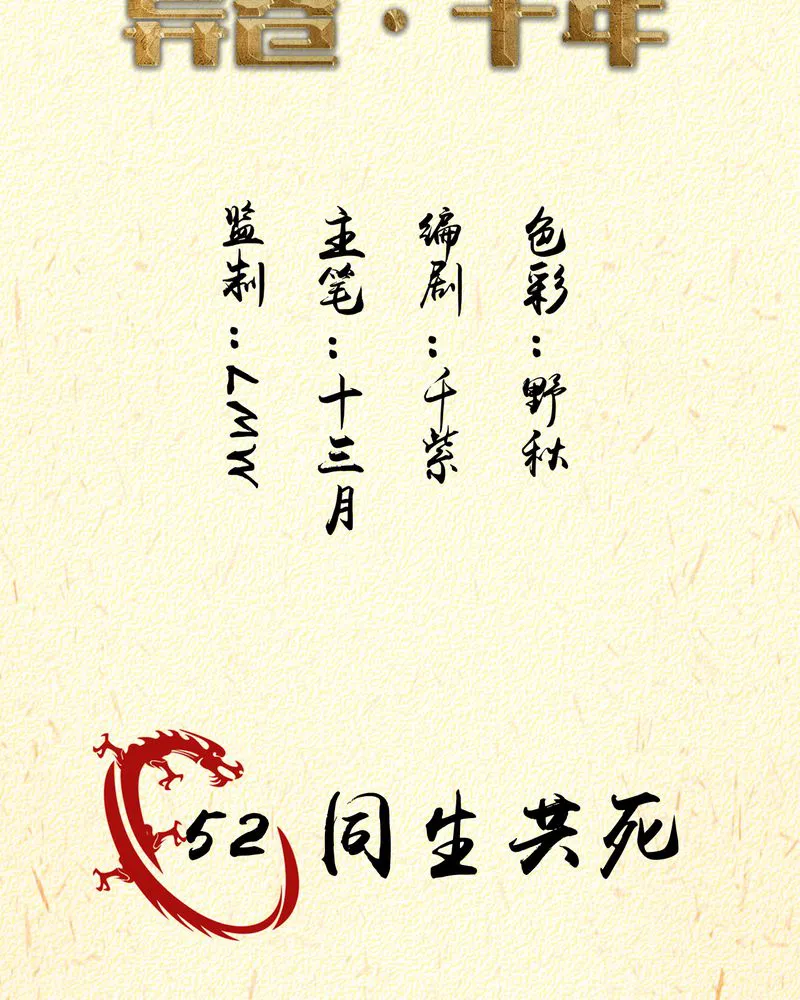 千年
监制：
主笔：十三月
编剧：千紫
色彩：野秋
52 同生共死